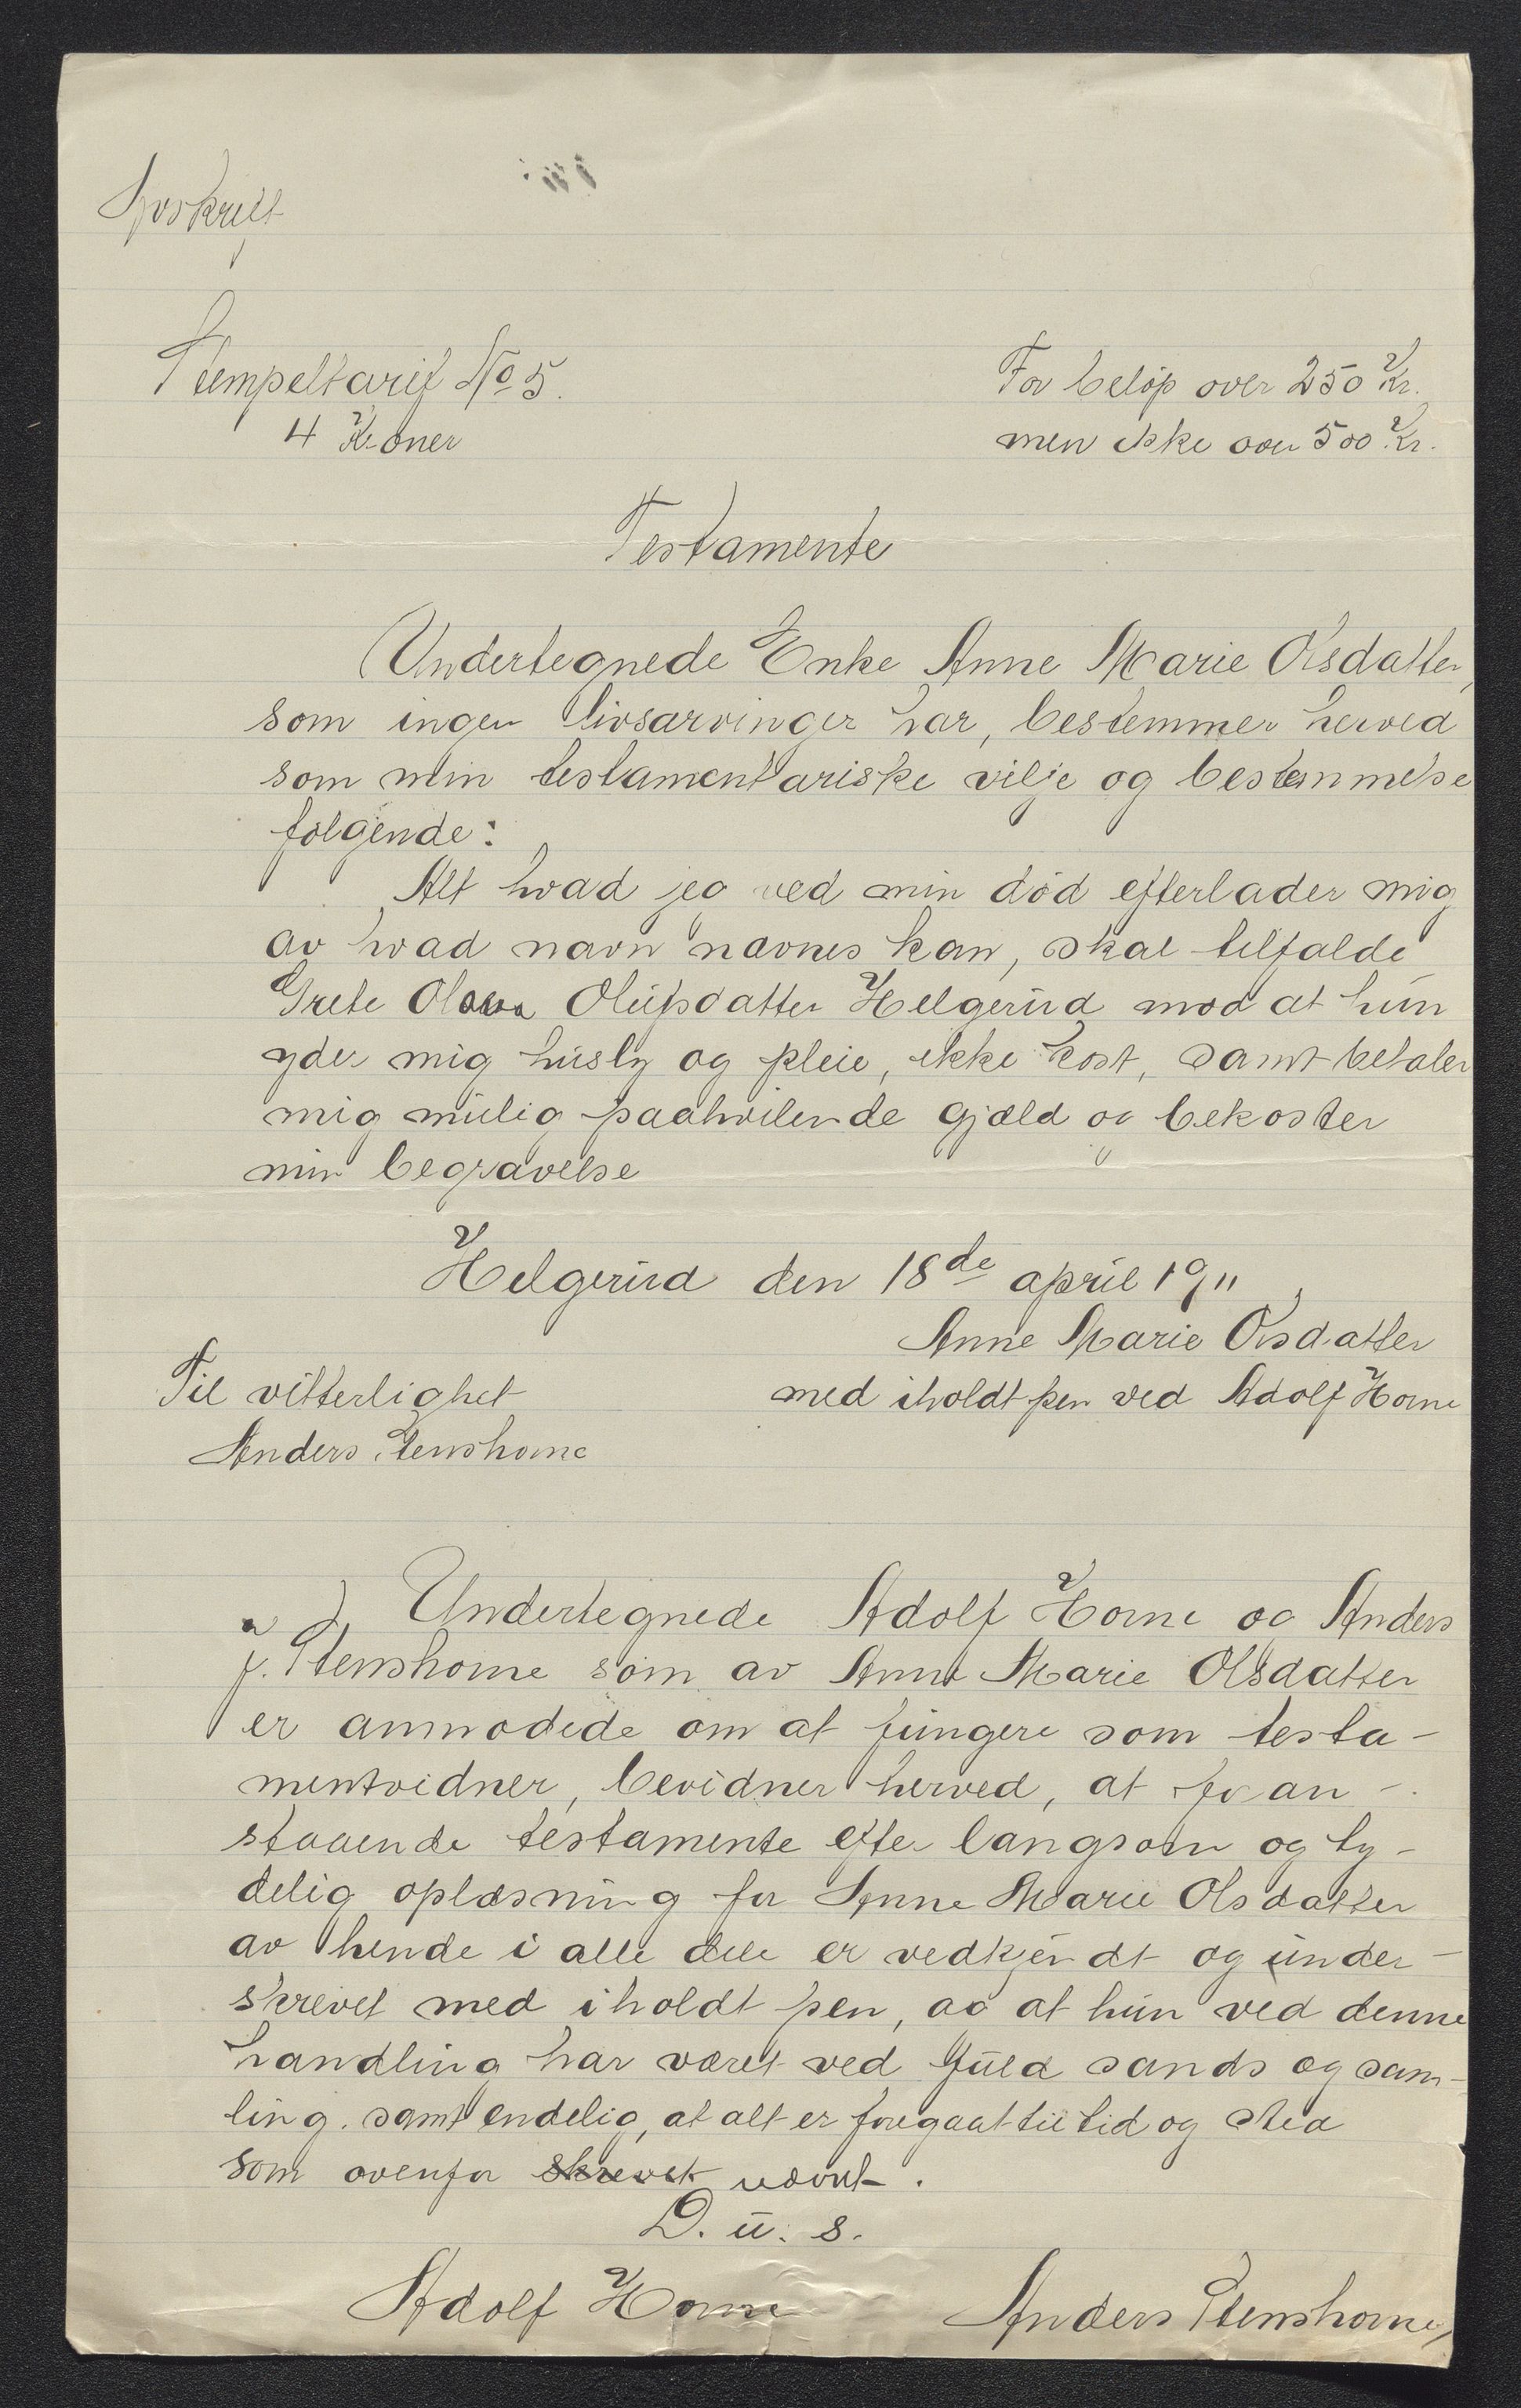 Avskrift
Stempeltarif No 5.
4 Kroner
For beløp over 250 Kr.
men ikke over 500 Kr.
Testamente
Undertegnede Enke Anne Marie Olsdatter,
som ingen livsarvinger har, bestemmer herved
som min testamentariske vilje og bestemmelse
følgende:
Alt hvad jeg ved min død efterlader mig
av hvad navn nævnes kan, skal tilfalde
Grete Olava Olufsdatter Helgerud mod at hun
yder mig husly og pleie, ikke kost, samt betaler
mig mulig paahvilende gjæld og bekoster
min begravelse
Helgerud den 18de april 1911
Anne Marie Olsdatter
med iholdt pen ved Adolf Horne
Til vitterlighet
Anders Stenshorne
Undertegnede Adolf Horne og Anders
J. Stenshorne som av Anne Marie Olsdatter
er anmodede om at fungere som testa-
mentvidner, bevidner herved, at foran-
staaende testamente efter langsom og ty-
delig oplæsning for Anne Marie Olsdatter
av hende i alle dele er vedkjendt og under-
skrevet med iholdt pen, og at hun ved denne
handling har været ved fuld sands og sam-
ling. samt endelig, at alt er foregaat til tid og sted
som ovenfor skrevet nævnt.
D. u. s.
Adolf Horne
Anders Stenshorne